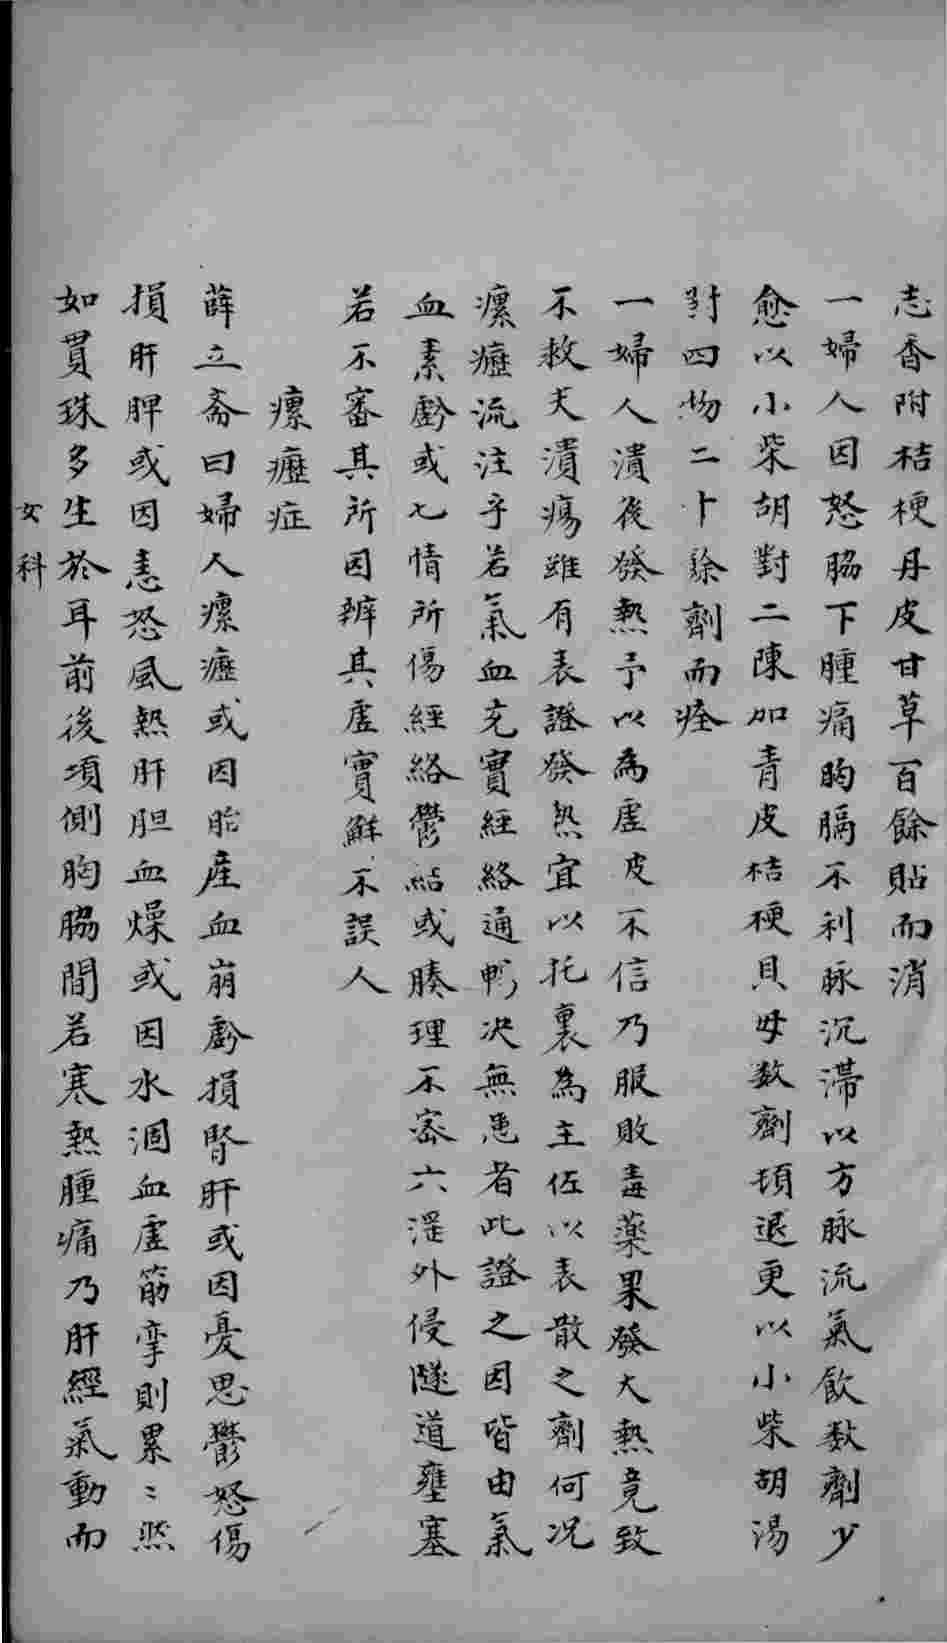 志香附桔梗丹皮甘草百餘貼而消
一婦人因怒脇下腫痛胸膈不利脉沉滯以方脉流氣飲数劑少
愈以小柴胡對二陳加青皮桔梗貝母数劑頓退更以小柴胡湯
對四物二十餘劑而痊
一婦人潰後發熱予以為虛皮不信乃服敗毒藥果發大熱竟致
不救夫潰瘍雖有表證發热宜以托裏為主佐以表散之劑何况
瘰癧流注乎若氣血充實經絡通暢决無患者此證之因皆由氣
血素虧或七情所傷經絡鬱結或腠理不密六滛外侵隧道壅塞
若不審其所因辨其虛實鮮不誤人
瘰癧症
薛立斎曰婦人瘰癧或因胎産血崩虧損腎肝或因憂思鬱怒傷
損肝脾或因恚怒風熱肝胆血燥或因水涸血虛筋孿則累〻然
如貫珠多生於耳前後項側胸脇間若寒熱腫痛乃肝經氣動而
女科